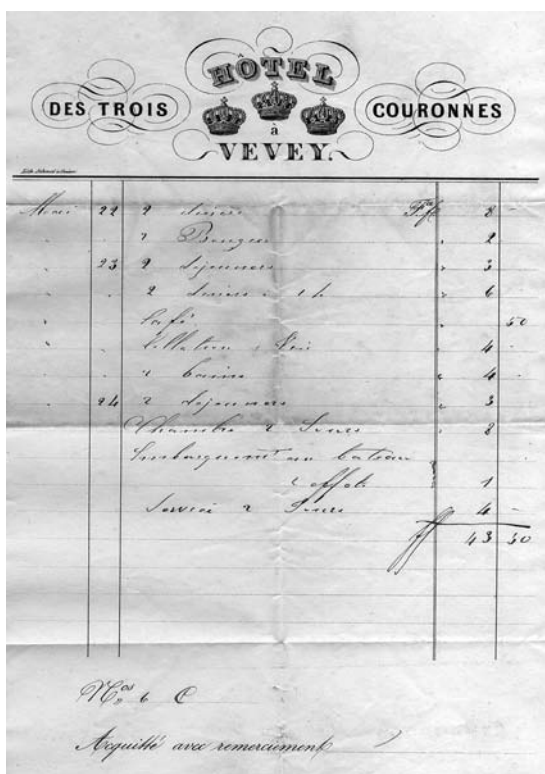 HÔTEL
DES TROIS COURONNES
à
VEVEY.
Mai 22 2 diners Fr 8 -
" . 2 Bougies " 2
. 23 2 déjeuners " 3
" . 2 diners à 1 h " 6
" Café " 50
" . & Thé " 4 -
" . 2 bains " 4 -
. 24 2 déjeuners " 3
Chambre 2 Jours " 8
Embarquemt au bateau
effets " 1
Service 2 Jours 4 -
ff 43 50
Nos 6 C
Acquitté avec remerciement